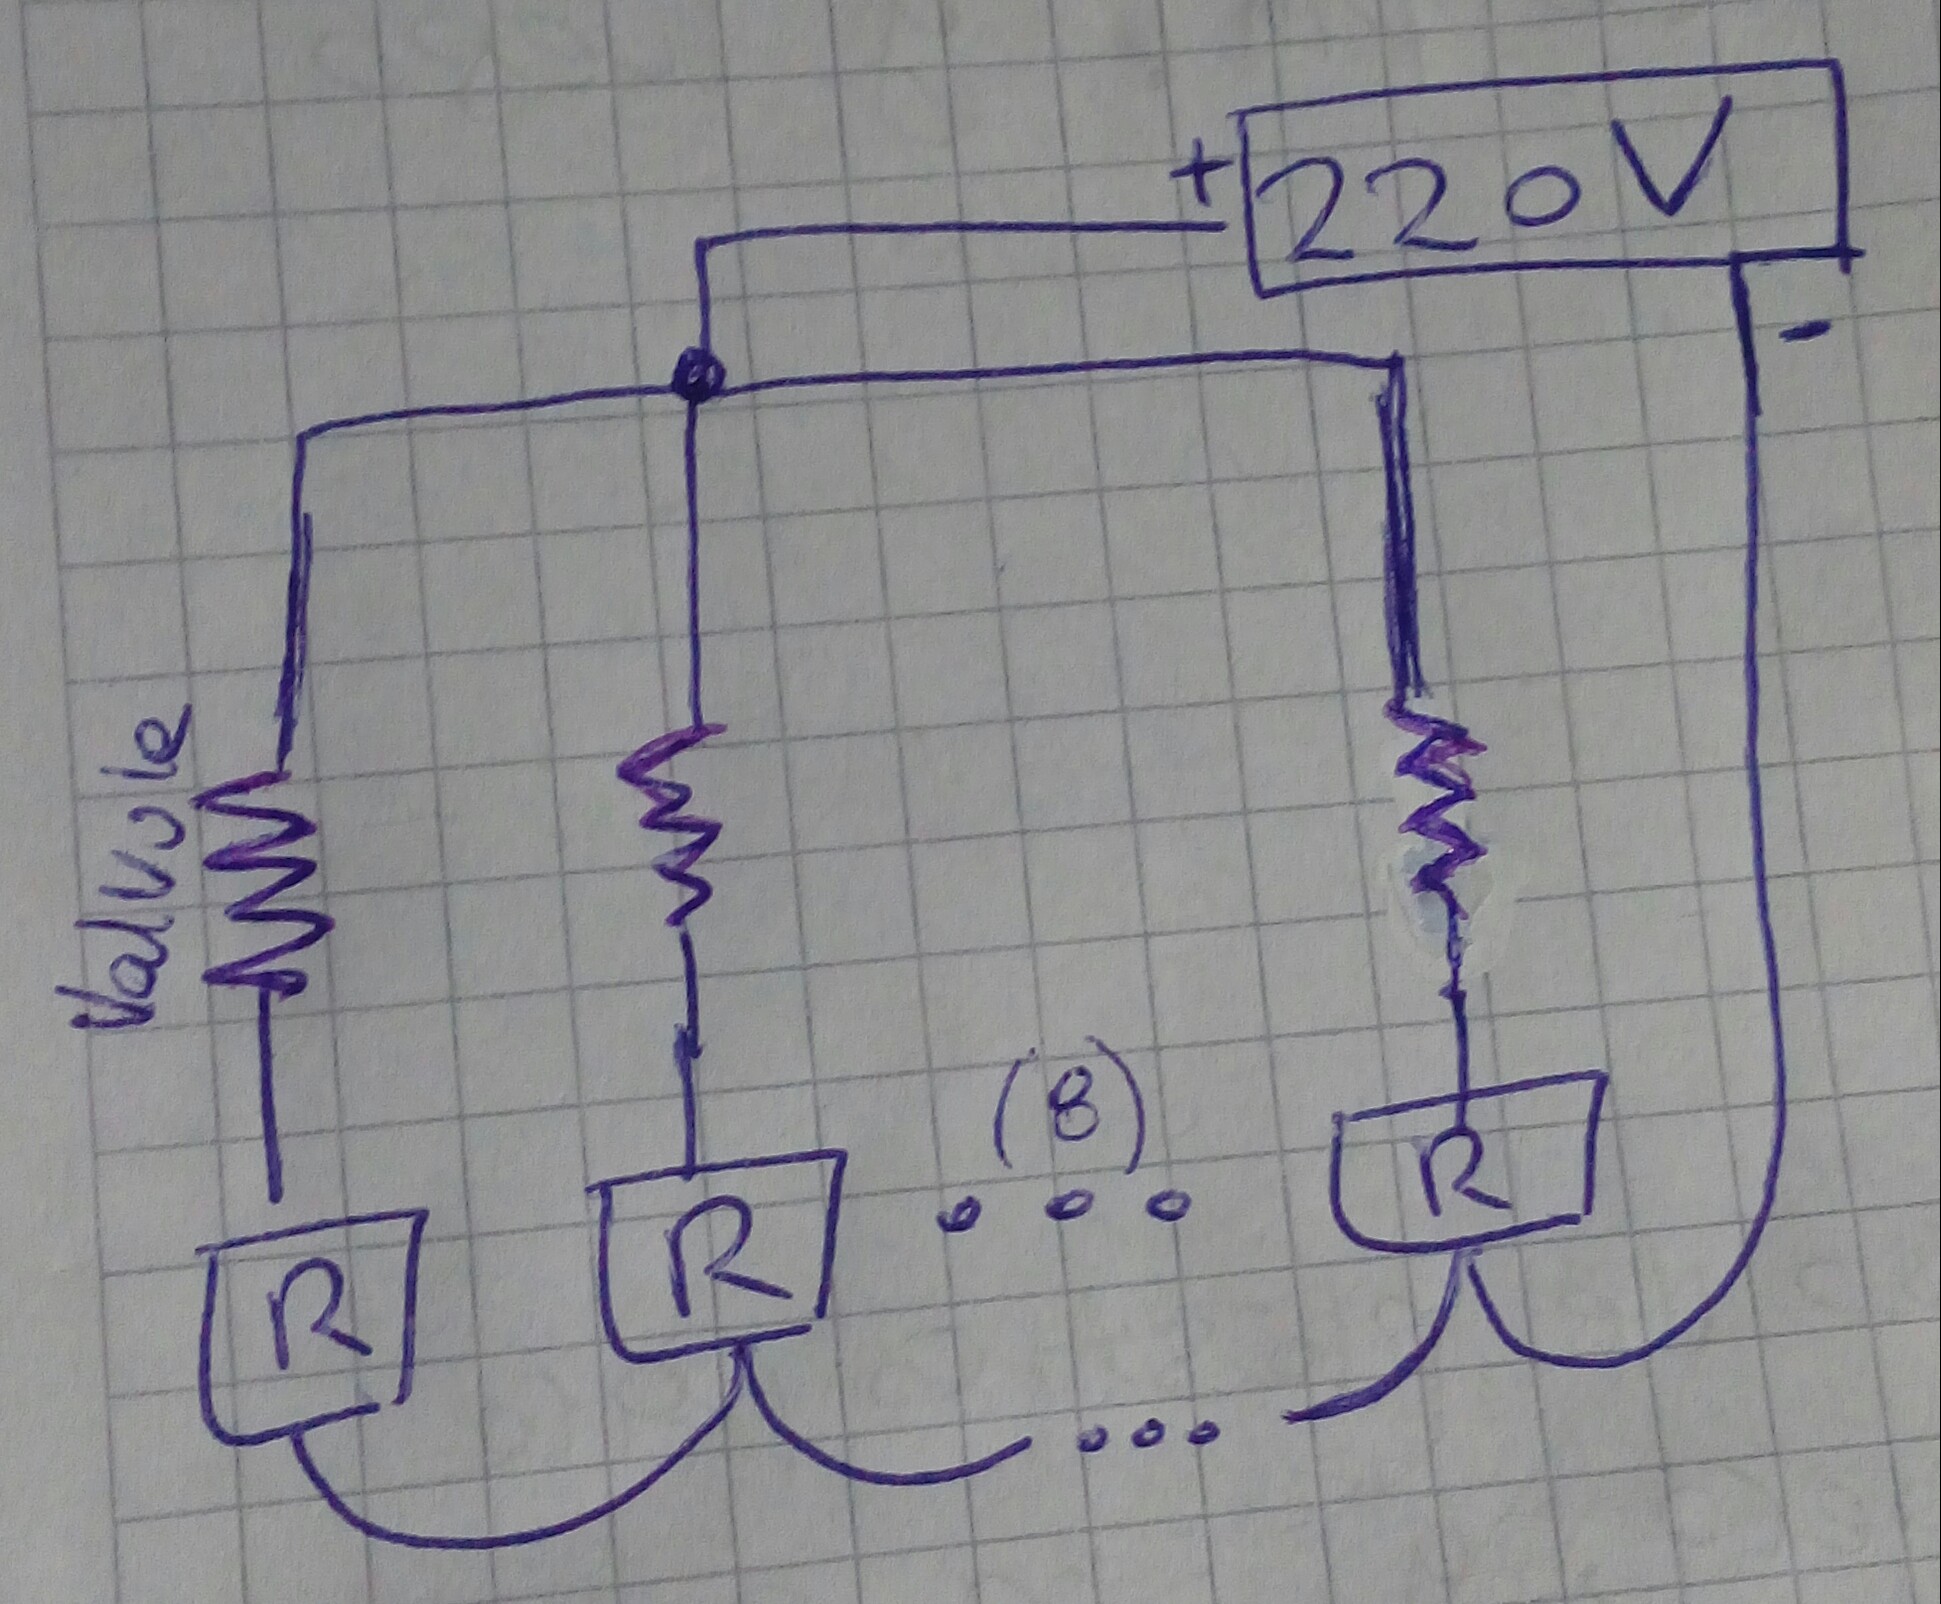 + 220V
-
Valvole
(8)
R R ... R
...